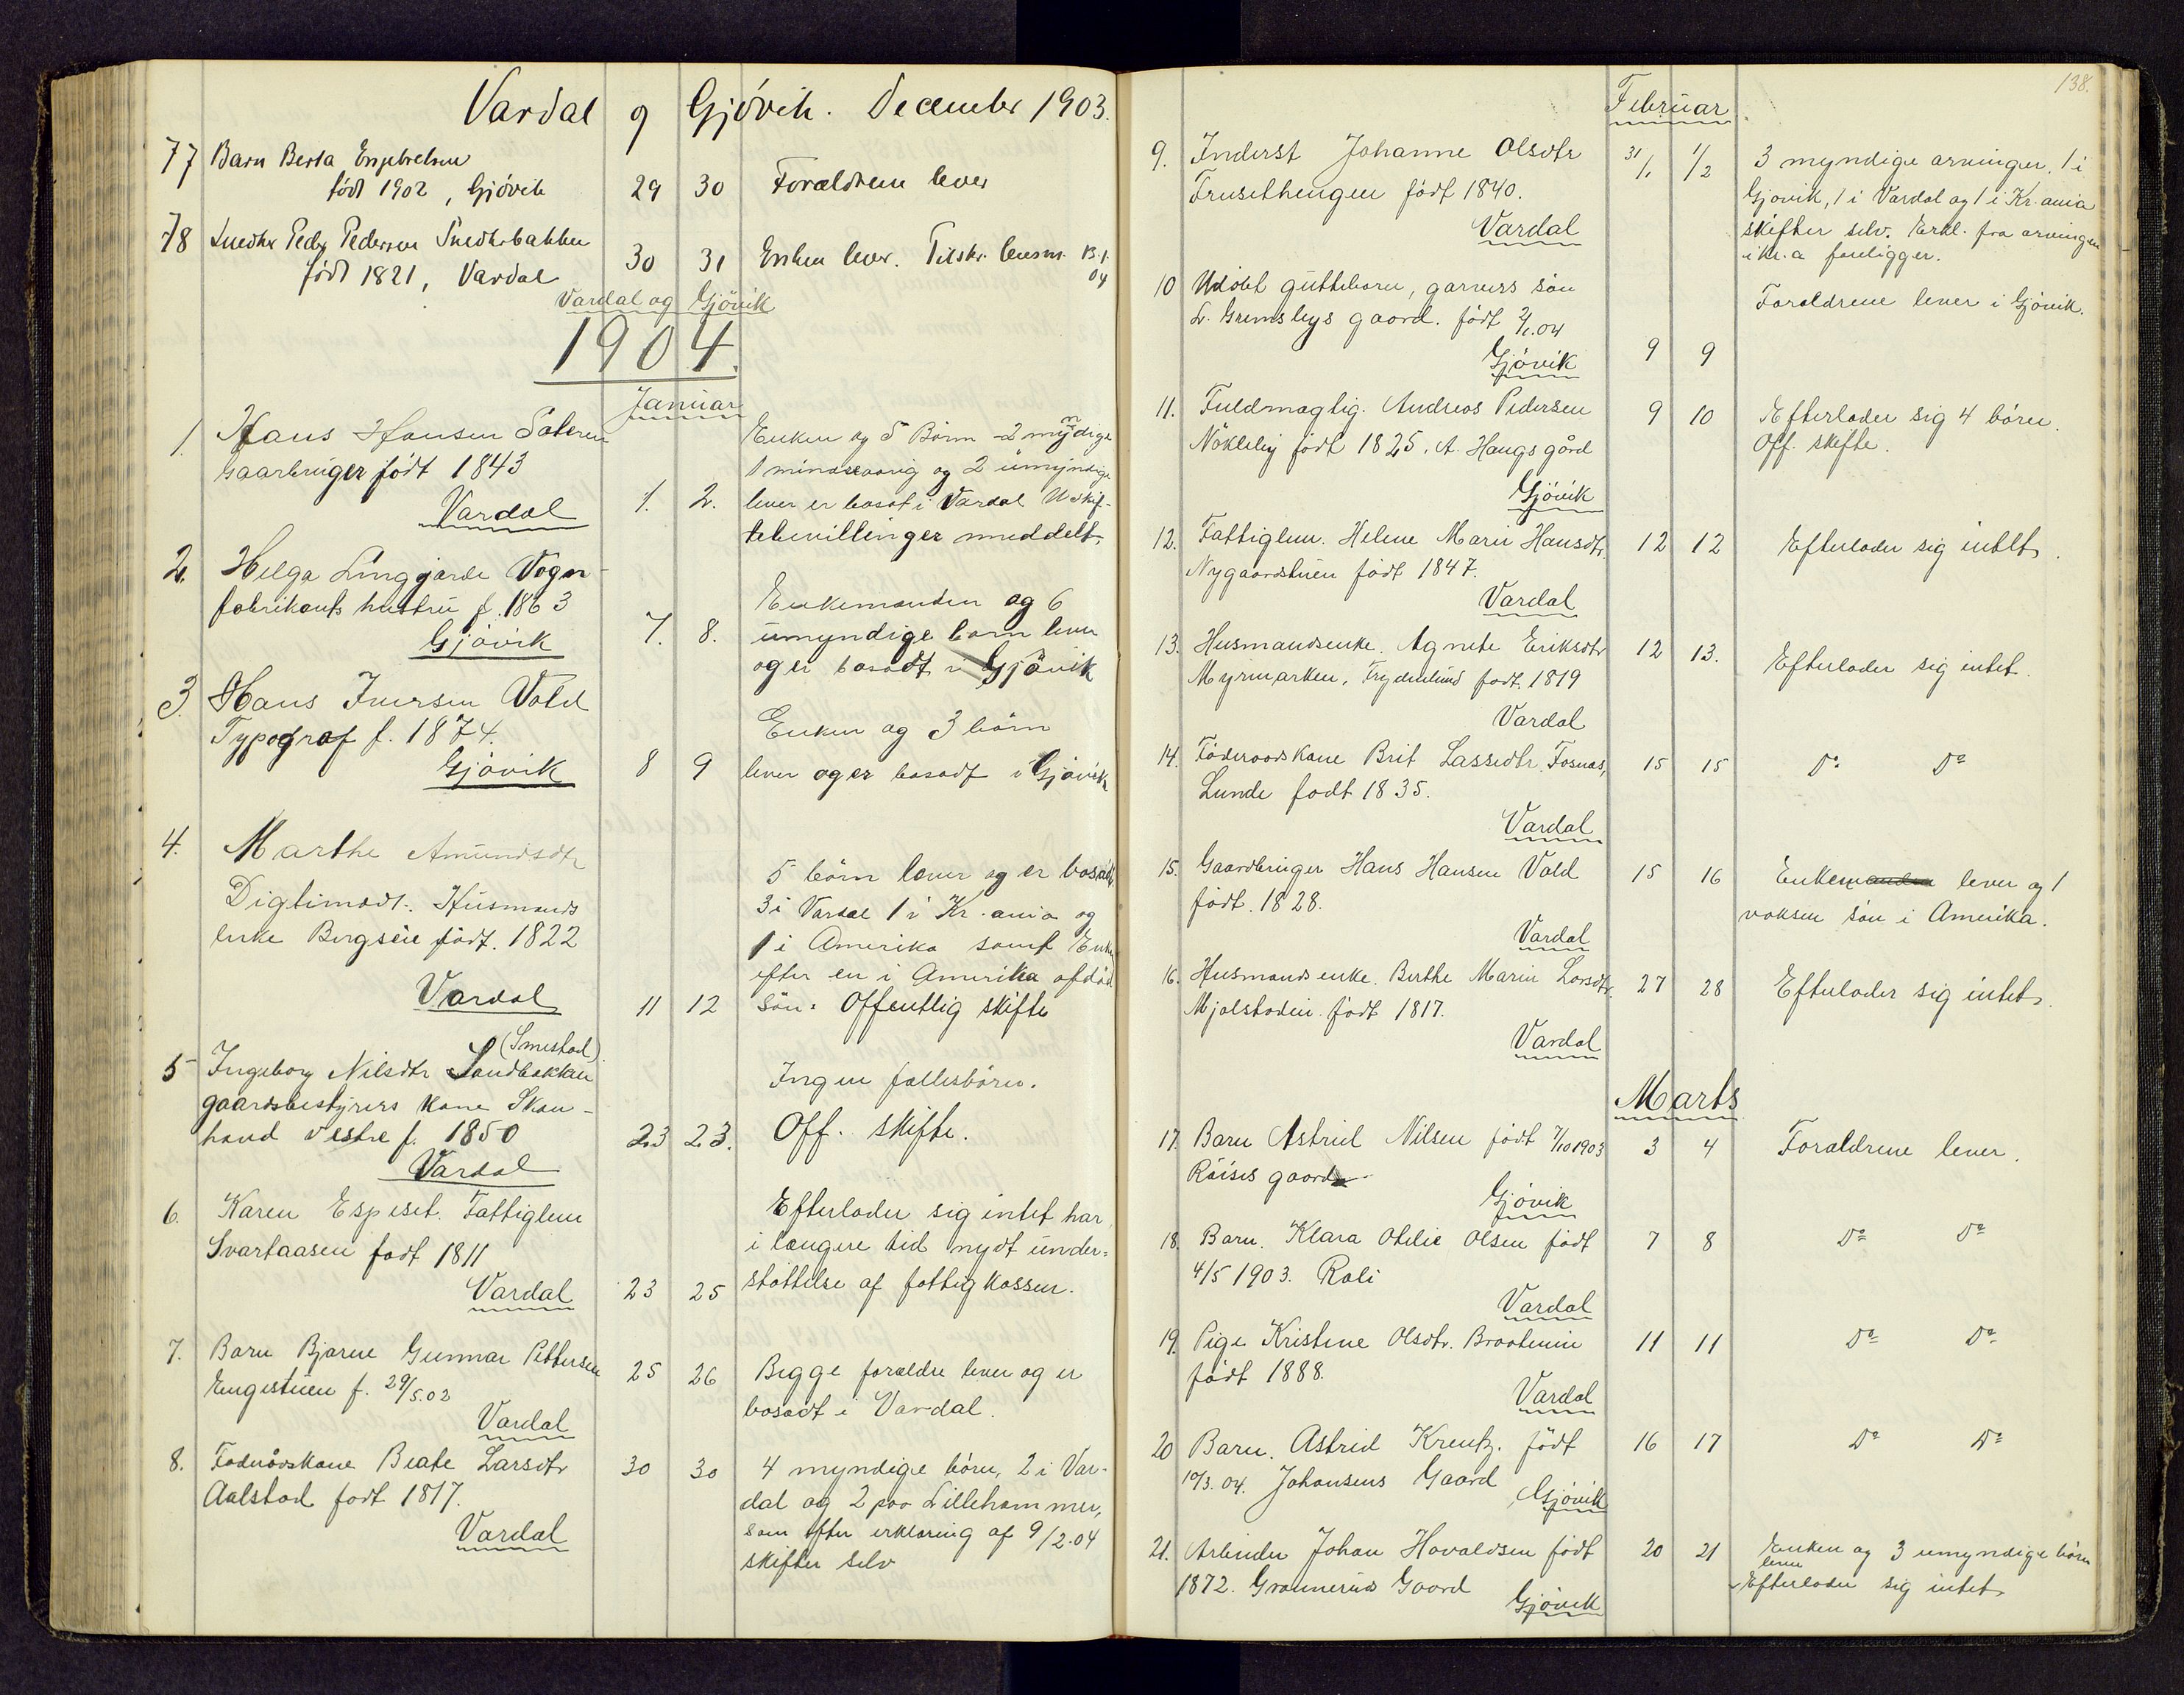 Vardal og Gjövik. December 1903.
77 Barn Berta Engebretsen
född 1902, Gjövik 29 30 Forældrene lever
78 Snedker Peder Pedersen Snedkerbakken
född 1821, Vardal 30 31 Enken lever. Tilskr. lensm. 13.1.04
Vardal og Gjövik
1904.
Januar
1. Hans Hansen
Gaarbruger födt 1843
Vardal 1. 2.
Enken og 5 Börn - 2 myndige
1 mindreaarig og 2 umyndige
lever er bosat i Vardal Uskif-
tebevillinger meddelt.
2. Helga Linggjarde Vogn-
fabrikants hustru f. 1863
Gjövik 7. 8.
Enkemanden og 6
umyndige barn lever
og er bosadt i Gjövik
3. Hans Iversen Vold
Typograf f. 1874.
Gjövik 8 9
Enken og 3 börn
lever og er bosadt i Gjövik
4. Marthe Amundsdtr
Digtimodt. Husmands
enke Bergseie födt. 1822
Vardal 11 12
5 börn lever og er bosadt
3 i Vardal 1 i Kr.ania og
1 i Amerika samt Enken
efter en i Amerika afdöd
sön: Offentlig skifte
5 Ingeborg Nilsdtr Sandbakken (Smestad)
gaardsbestyrers kone Skon-
hovd vestre f. 1850
Vardal 23 23.
Ingen fællesbörn.
Off. skifte.
6. Karen Espeset. Fattiglem
Svartaasen födt 1811
Vardal 23 25
Efterlader sig intet har
i længere tid nydt under-
stöttelse af fattigkassen.
7. Barn Bjarne Gunnar Pettersen
Engestuen f. 29/5.02
Vardal 25 26
Begge forældre lever og er
bosadt i Vardal.
8. Föderådskone Beate Larsdtr
Aalstad födt 1817.
Vardal 30 30
4 myndige börn, 2 i Var-
dal og 2 paa Lillehammer,
som efter erklæring af 9/2.04
skifter selv
138.
Februar
9. Inderst Johanne Olsdtr
Frusethengen födt 1840.
Vardal 31/1 1/2
3 myndige arvinger, 1 i
Gjovik, 1 i Vardal og 1 i Kr.ania
skifter selv. Erkl. fra arvingen
i Kr.a foreligger.
10 Udöbt guttebarn, garvers sön
L. Gremsbys gaard. födt 2/1.04
Gjövik 9 9
Forældrene lever i Gjövik.
11. Fuldmægtig. Andreas Pedersen
Nökleby födt 1825. A. Haugs gård
Gjövik 9 10
Efterlader sig 4 börn.
Off. skifte.
12. Fattiglem. Helene Marie Hansdtr
Nygaardstuen födt 1847.
Vardal 12 12 Efterlader sig intet.
13. Husmandsenke. Agnete Eriksdtr
Myrmarken, Frydenlund födt. 1819
Vardal 12 13. Efterlader sig intet.
14. Föderaadskone Brit Lassedtr. Fosnæs,
Lunde födt 1835.
Vardal 15 15 Do Do
15. Gaardbruger Hans Hansen Vold
födt. 1828.
Vardal 15 16
Enkemanden lever og 1
voksen sön i Amerika.
16. Husmands enke. Berthe Marie Larsdtr.
Mjølstadeie födt 1817.
Vardal 27 28 Efterlader sig intet.
Marts
17. Barn Astrid Nilsen födt 7/10 1903
Röises gaard
Gjövik 3 4 Forældrene lever.
18. Barn. Klara Otilie Olsen födt
4/5 1903. Roli
Vardal 7 8 Do Do
19. Pige Kristine Olsdtr. Braatenin
födt 1888.
Vardal 11 11 Do Do
20 Barn. Astrid Kreutz. födt
10/3.04. Johansens Gaard
Gjövik 16 17 Do Do
21. Arbeider Johan Hovaldsen födt
1872. Grannerud Gaard
Gjövik 20 21
Enken og 3 umyndige börn
lever
Efterlader sig intet